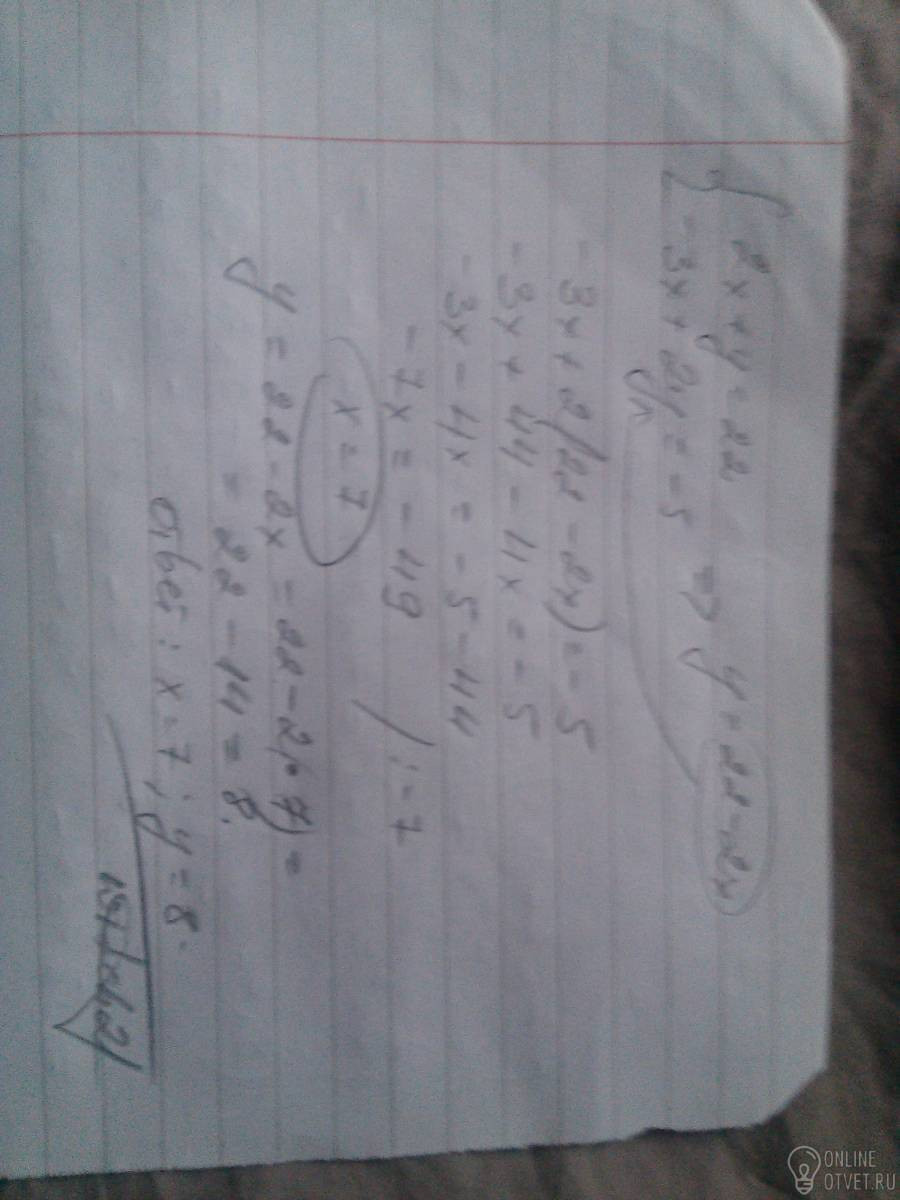 { 2x + y = 22 ⇒ y = 22 - 2x
{ -3x + 2y = -5
-3x + 2(22 - 2x) = -5
-3x + 44 - 4x = -5
-3x - 4x = -5 - 44
-7x = -49 / : -7
x = 7
y = 22 - 2x = 22 - 2(· 7) =
= 22 - 14 = 8.
Ответ: x = 7; y = 8.
ONLINE
OTVET.RU